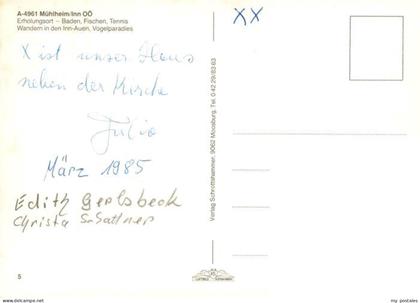 A-4961 Mühlheim/Inn OÖ
Erholungsort – Baden, Fischen, Tennis
Wandern in den Inn-Auen, Vogelparadies
X ist unser Haus
neben der Kirche
Julia
März 1985
Edith Gerlsbeck
Christa
5
XX
Verlag Schrottshammer, 9062 Moosburg, Tel. 0 42 29/83 83